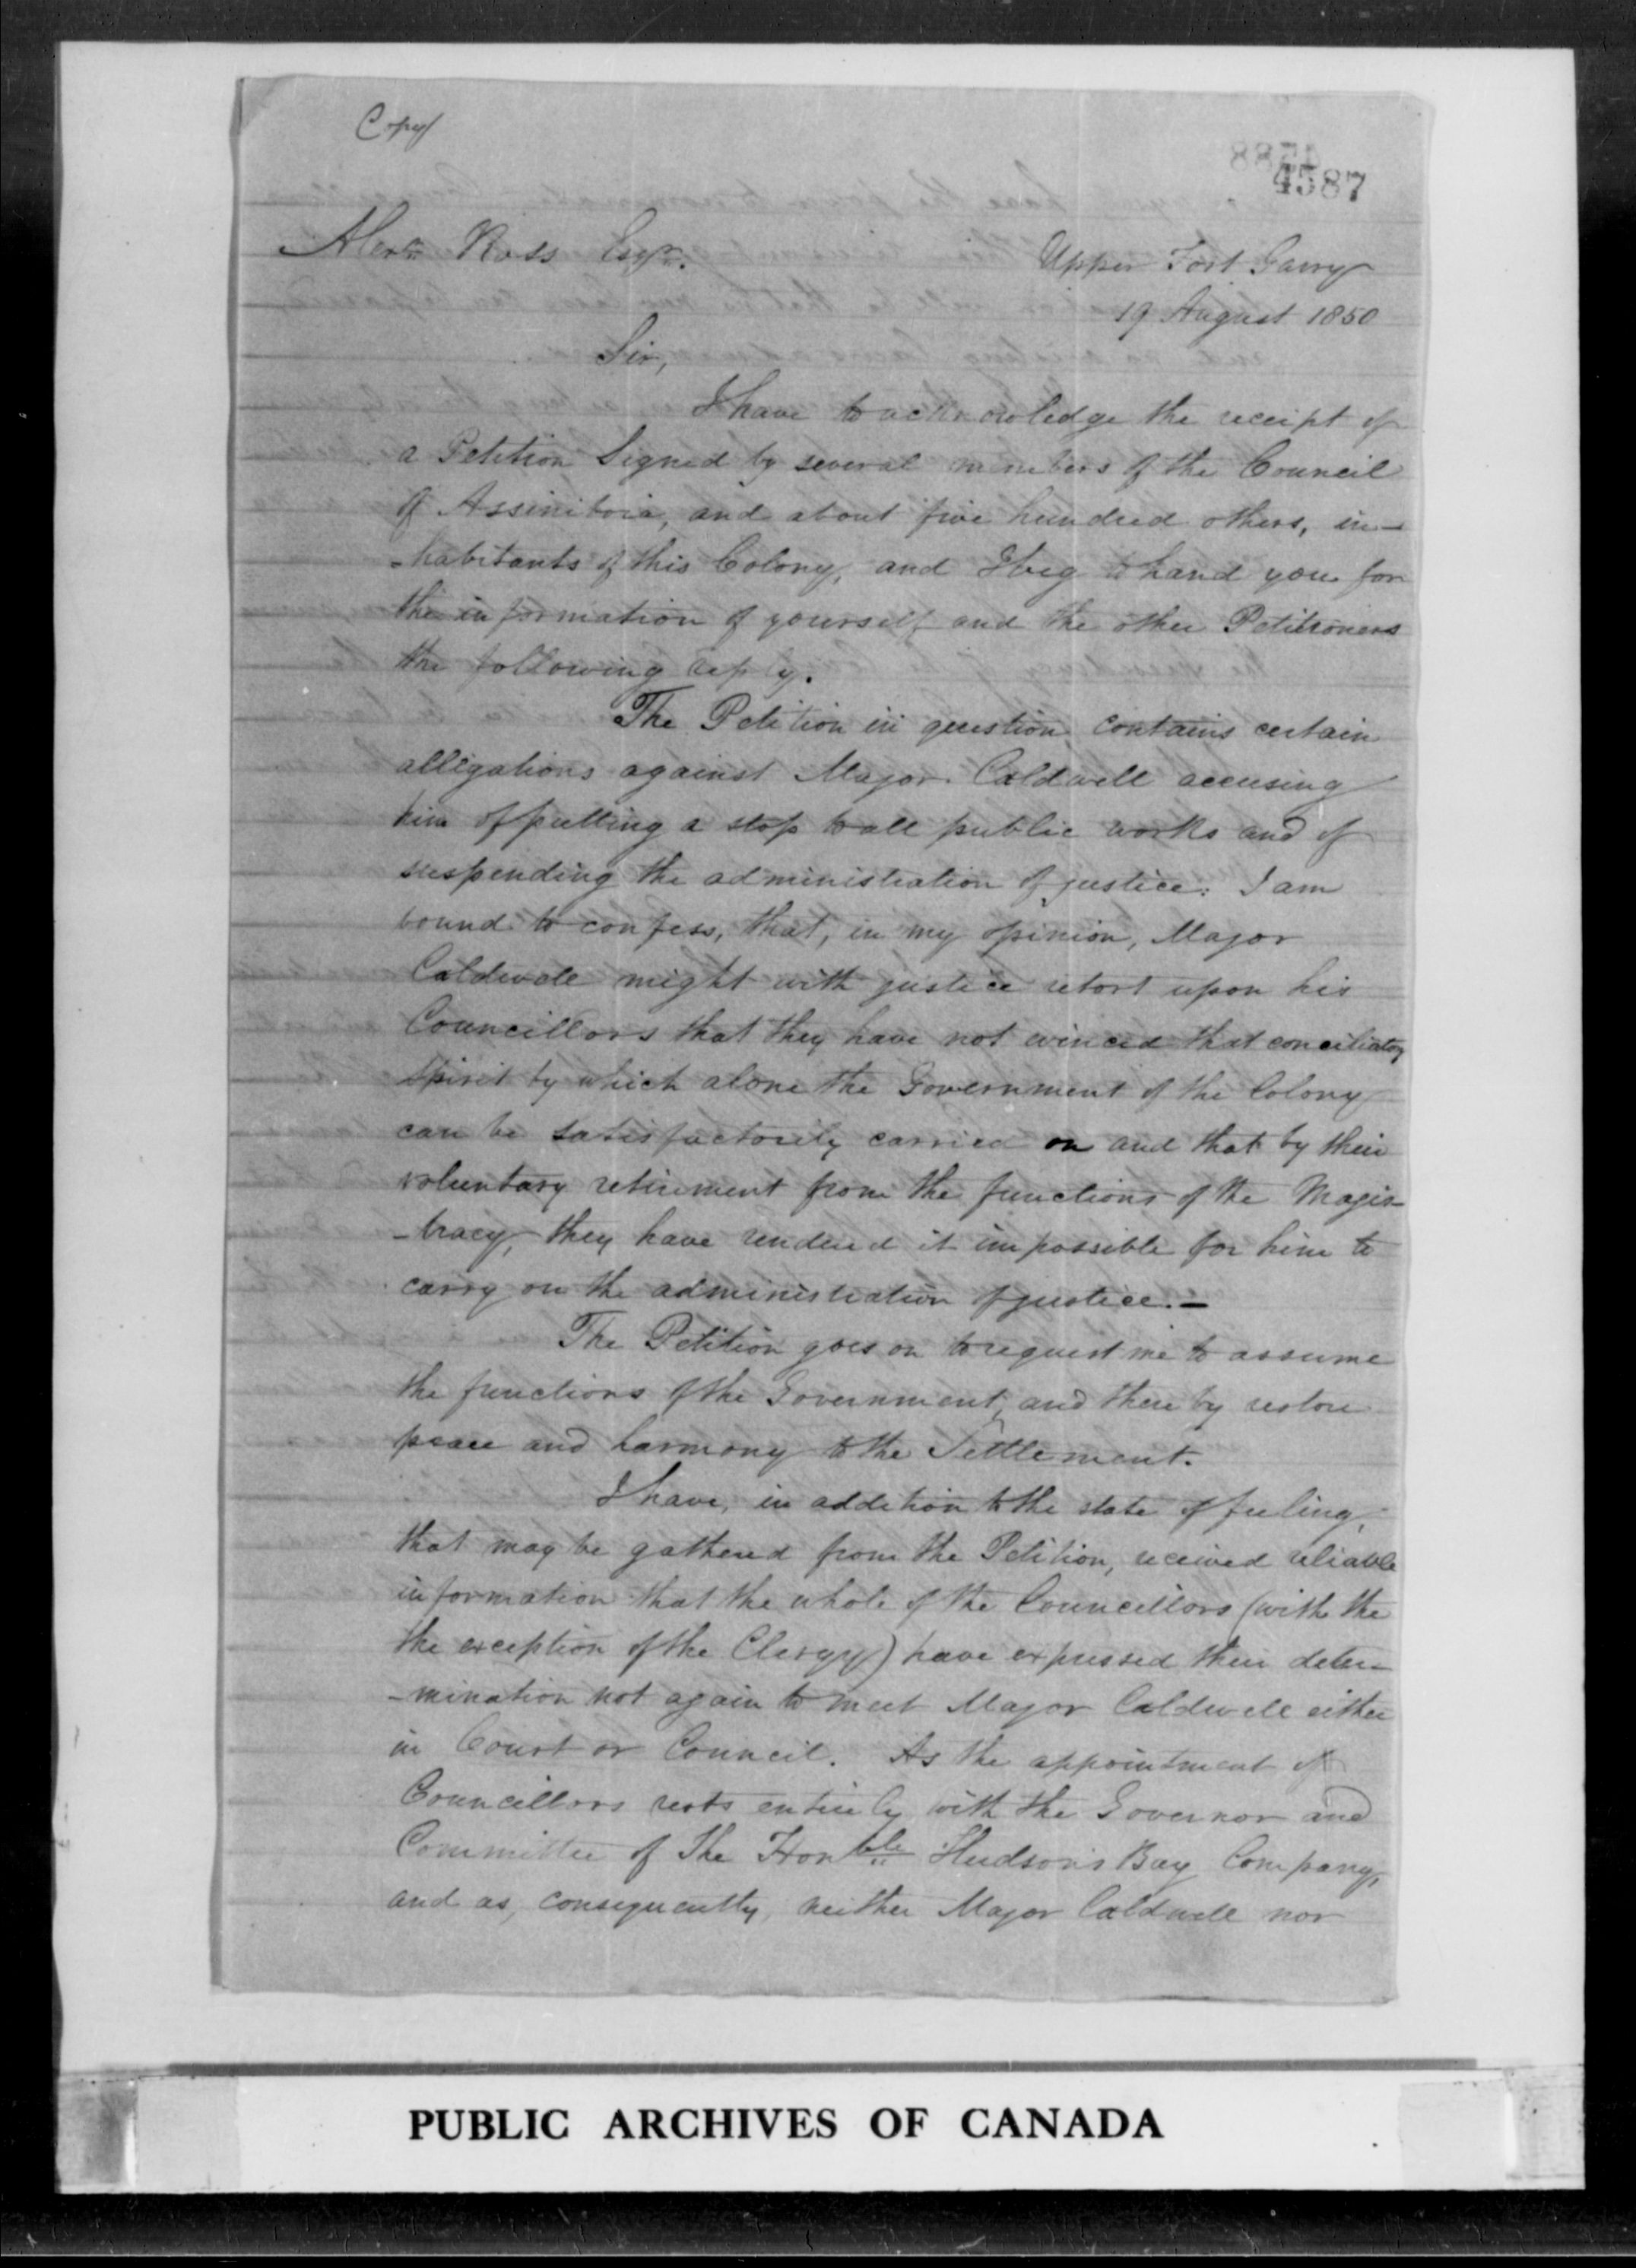 Copy
4588
4587
Alexr. Ross Esqr.
Upper Fort Garry
19 August 1850
Sir,
I have to acknowledge the receipt of
a Petition Signed by several members of the Council
of Assiniboia, and about five hundred others, in-
-habitants of this Colony, and I beg to hand you for
the information of yourself and the other Petitioners
the following reply.
The Petition in question contains certain
alligations against Major Caldwell accusing
him of putting a stop to all public works and of
suspending the administration of justice: I am
bound to confess, that, in my opinion, Major
Caldwell might with justice retort upon his
Councillors that they have not evinced that conciliatory
spirit by which alone the Government of the Colony
can be satisfactorily carried on and that by their
voluntary retirement from the functions of the Magis-
-tracy, they have rendered it impossible for him to
carry on the administration of justice.-
The Petition goes on to request me to assume
the functions of the Government, and thereby restore
peace and harmony to the Settlement.
I have, in addition to the state of feeling,
that may be gathered from the Petition, received reliable
information that the whole of the Councillors (with the
the exception of the Clergy) have expressed their deter-
-mination not again to meet Major Caldwell either
in Court or Council. As the appointment of
Councillors rests entirely with the Governor and
Committee of The Honble Hudson's Bay Company,
and as, consequently, neither Major Caldwell nor
PUBLIC ARCHIVES OF CANADA